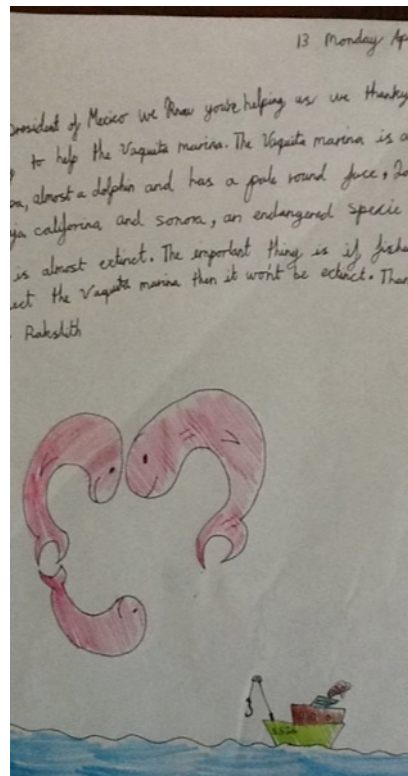 13 Monday Ap
resident of Mexico we know you're helping us we thanky
to help the Vaquita marina. The Vaquita marina is a
almost a dolphin and has a pale round face,
ya califorina and sonora, an endangered specie
is almost extinct. The emportant thing is if fishe
ect the Vaquita marina then it won't be extinct. Than
Rakshith